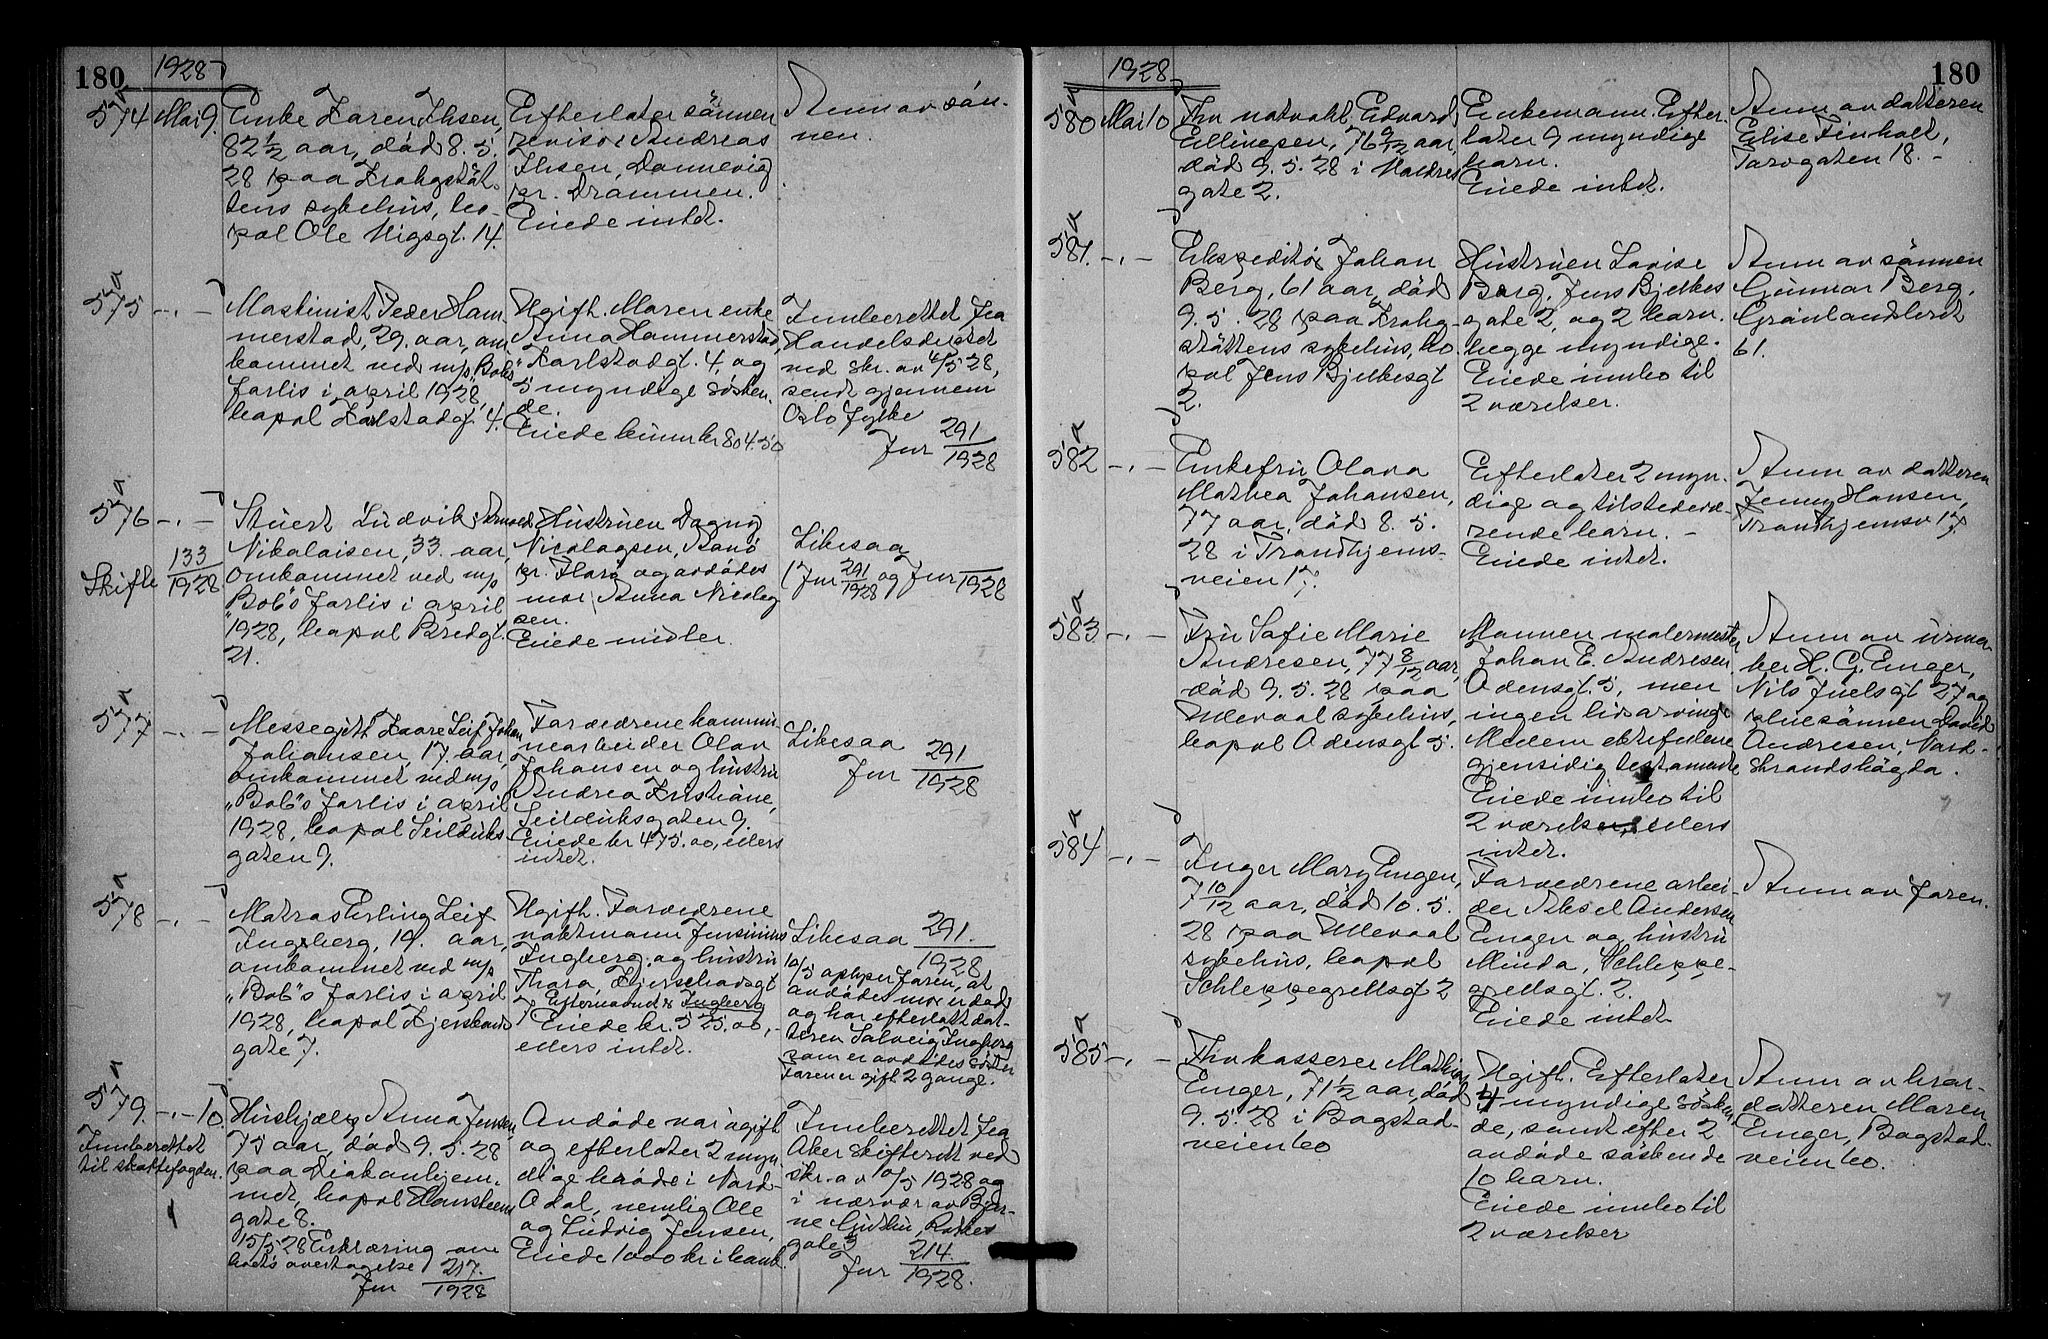 180
1928
574a
Mai 9.
Enke Karen Ihsen,
82 1/2 aar, död 8. 5.
28 paa Krohgstöt-
tens sykehus, bo-
pæl Ole Vigsgt. 14.
Efterlater sönnen
revisor Andreas
Ihsen, Dannevig
pr. Drammen.
Eiede intet.
Anm av sön-
nen.
575a
-"-
Maskinist Peder Ham
merstad, 29. aar, om
kommet ved m/s "Bob's
forlis i april 1928,
bopæl Karlstadgt. 4.
Ugift. Moren enke
Anna Hammerstad,
Karlstadgt. 4, og
5 myndige sösken-
de.
Eiede kun kr 804.50
Innberettet fra
Handelsdeptet
ved skr. av 4/5 28,
sendt gjennem
Oslo fylke
Jnr 291/1928
576a
-"-
Skifte 133/1928
Stuert Ludvik Arnold
Nikolaisen, 33. aar,
omkommet ved m/s
"Bob"s forlis i april
1928, bopæl Bredgt.
21.
Hustruen Dagny
Nicolaysen,
pr. Florö og avdödes
mor, Anna Nicolay
sen.
Eiede midler.
Likesaa
(Jnr 291/1928 og Jnr /1928
577a
-"-
Messegutt Kaare Leif Johan
Johansen, 17. aar,
omkommet ved m/s
"Bob"s forlis i april
1928, bopæl Seilduks
gaten 9.
Forældrene kommu-
nearbeider Olav
Johansen og hustru
Andrea Kristiane,
Seilduksgaten 9.
Eiede kr 475.00, ellers
intet.
Likesaa
Jnr 291/1928
578a
-"-
Matros Erling Leif
Ingberg, 19. aar,
omkommet ved m/s
"Bob"s forlis i april
1928, bopæl Hjerskaus
gate 7.
Ugift. Forældrene
vaktmann Jensinius
Ingberg, og hustru
Thora, Hjerschausgt
7 Efternavnet er Ingberg
Eiede kr. 525.00,
ellers intet.
Likesaa 291/1928
10/5 oplyser faren, at
avdödes mor er död
og har efterlatt dat-
teren Solveig Ingberg
som er avdödes söster
Faren er gift 2 gange.
579a
-"- 10
Innberettet
til skattefogden.
Hushjælp Anna Jensen,
75 aar, död 9. 5. 28
paa Diakonhjem-
met, bopæl Hansteens
gate 8.
15/5 28 Erklæring om
boets overtagelse
Jnr 217/1928
Avdöde var ugift
og efterlater 2 myn-
dige brödre i Nord-
Odal, nemlig Ole
og Ludvig Jensen,
Eiede 1000 kr i bank.
Innberettet fra
Aker skifterett ved
skr. av 10/5 1928 og
i nærvær av Bjar-
ne
gate 3
Jnr 214/1928.
180
1928
580a
Mai 10
Fhv natvakt Edvard
Ellingsen, 76 9/12 aar,
död 9. 5. 28 i Valdres
gate 2.
Enkemann. Efter-
later 9 myndige
barn.
Eiede intet.
Anm av datteren
Elise Finholt,
Torvgaten 18. -
581.a
-"-
Ekspeditör Johan
Berg, 61 aar, död
9. 5. 28 paa Krohg-
stöttens sykehus, bo
pæl Jens Bjelkesgt
2.
Hustruen Lovise
Berg, Jens Bjelkes
gate 2, og 2 barn.
begge myndige.
Eiede innbo til
2 værelser.
Anm av sönnen
Gunnar Berg,
Grönlandsleret
61.
582a
-"-
Enkefru Olava
Mathea Johansen,
77 aar, död 8. 5.
28 i Trondhjems-
veien 17.
Efterlater 2 myn-
dige og tilstedevæ-
rende barn. -
Eiede intet.
Anm av datteren
Jenny Hansen,
Trondhjemsv 17.
583a
-"-
Fru Sofie Marie
Andresen, 77 8/12 aar,
död 9. 5. 28 paa
Ullevaal sykehus,
bopæl Odensgt 5.
Mannen malermester
Johan E. Andresen
Odensgt. 5, men
ingen livsarvinger
Mellem ektefellene
gjensidig testamente
Eiede innbo til
2 værelser, ellers
intet.
Anm av urma-
ker H. G. Enger,
Nils Juelsgt 27 og
pleiesönnen David
Andresen, Nord-
strandshögda.
584a
-"-
Inger Mary Engen,
7 10/12 aar, död 10. 5.
28 paa Ullevaal
sykehus, bopæl
Schleppegrellsgt 2
Forældrene arbei-
der Aksel Andersen
Engen og hustru
Minda, Schleppe-
grellsgt. 2.
Eiede intet.
Anm av faren.
585a
-"-
Fhv kasserer Mathias
Enger, 71 1/2 aar, död
9. 5. 28 i Bogstad-
veien 60
Ugift. Efterlater
4 myndige sösken
de, samt efter 2
avdöde söskende
10 barn.
Eiede innbo til
2 værelser
Anm av bror-
datteren Maren
Enger, Bogstad-
veien 60.